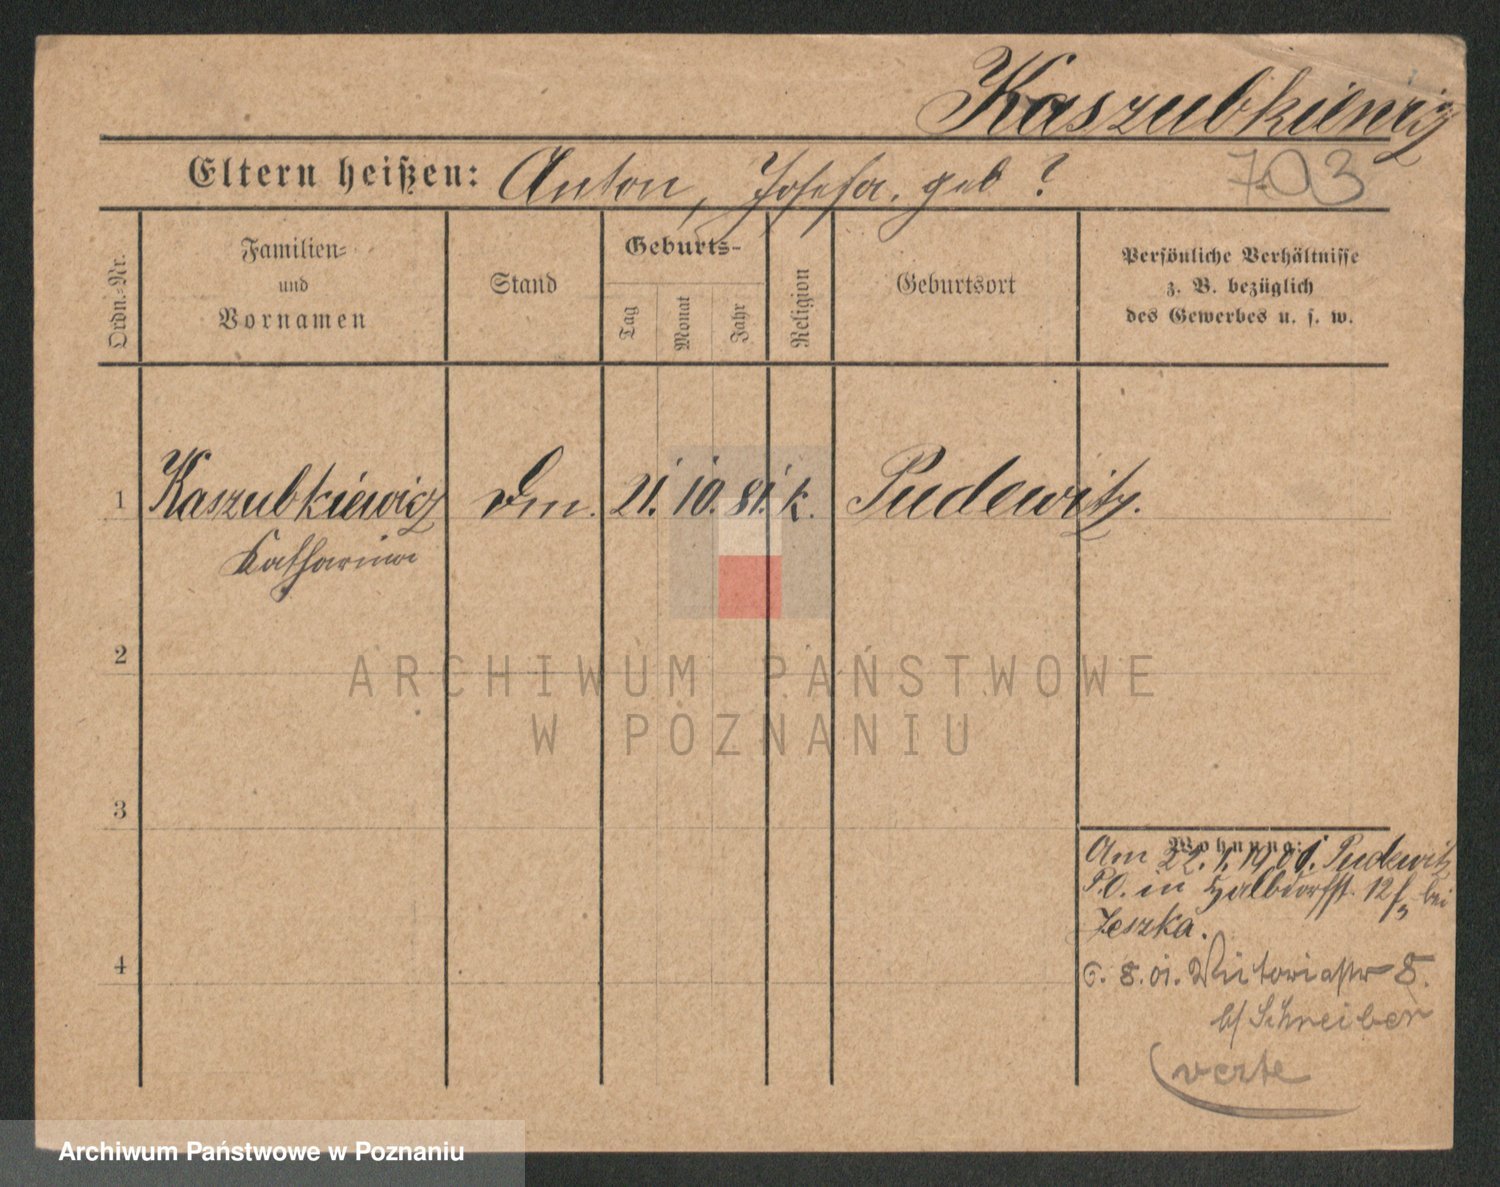 Kaszubkiewicz
Eltern heißen: Anton, Josefa, geb ?
703
Ordn.-Nr.
Familien-
und
Vornamen
Stand
Geburts-
Tag
Monat
Jahr
Religion
Geburtsort
Persönliche Verhältnisse
z. B. bezüglich
des Gewerbes u. s. w.
1 Kaszubkiewicz Dm. 21. 10. 81. k. Pudewitz.
Katharina
2
ARCHIWUM PAŃSTWOWE
W POZNANIU
3
Wohnung:
Am 22.1.1901. Pudewitz
P.O. in Halbdorfst. 12 bei
Jeszka.
6. 8. 01. Viktoriastr 8.
b/ Schreiber
4
verte
Archiwum Państwowe w Poznaniu